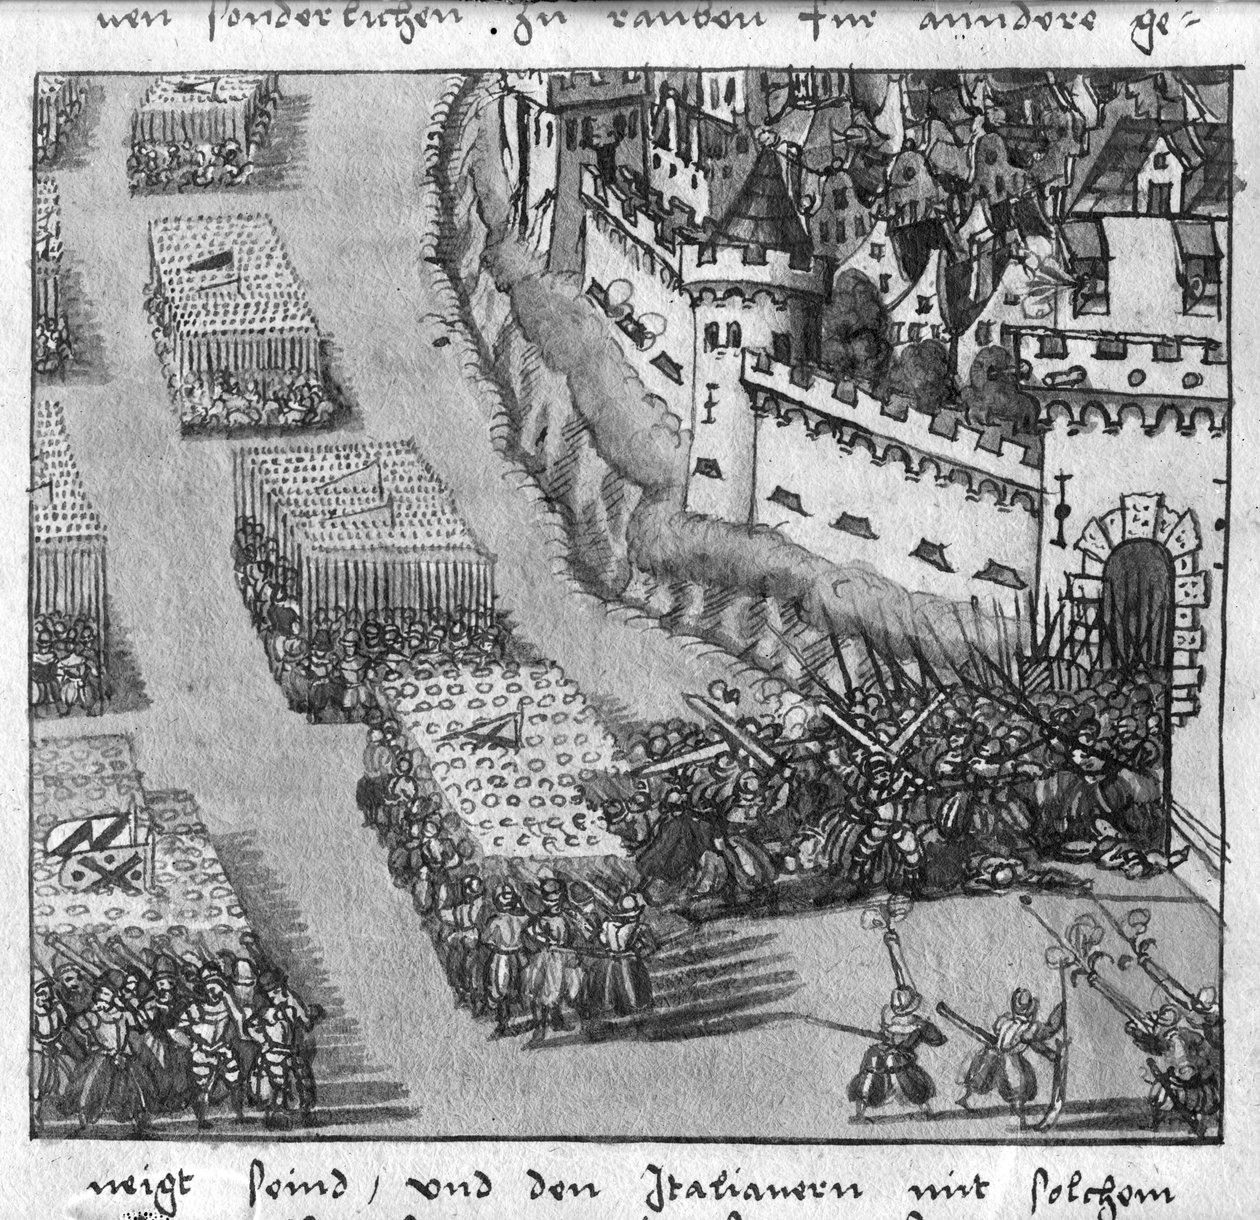 nen sonderlichen zu rauben für anndere ge-
neigt seind / vnd den Italianern mit solchem